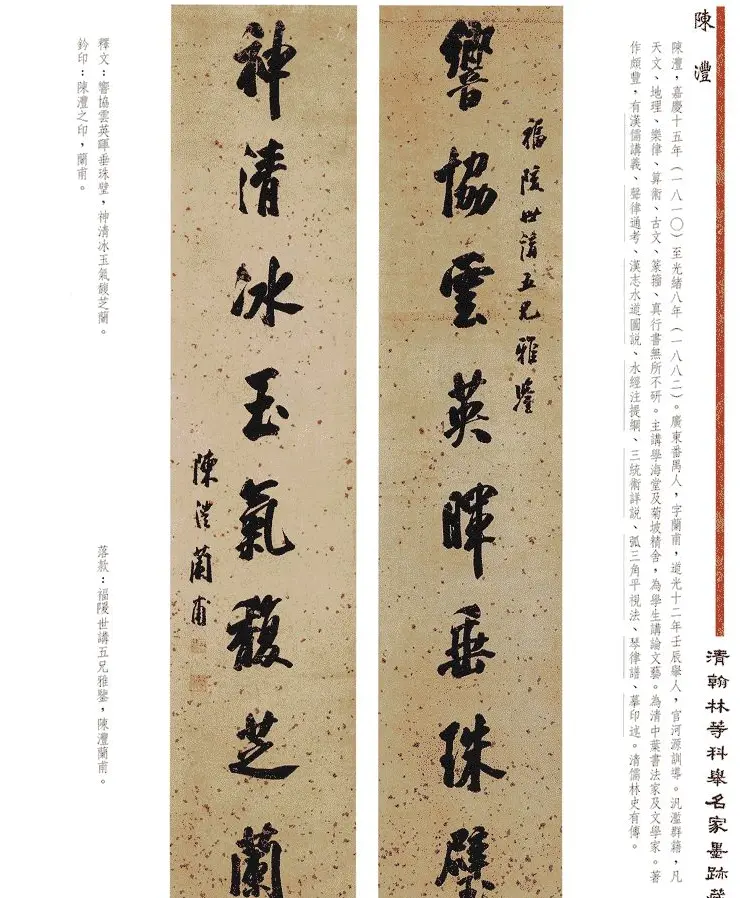 陳澧
陳澧，嘉慶十五年（一八一〇）至光緒八年（一八八二）。廣東番禺人，字蘭甫，道光十二年壬辰舉人，官河源訓導。汎濫群籍，凡
天文、地理、樂律、算術、古文、篆籀、真行書無所不研。主講學海堂及菊坡精舍，為學生講論文藝。為清中葉書法家及文學家。著
作頗豐，有漢儒講義、聲律通考、漢志水道圖説、水經注提綱、三統術詳説、弧三角平視法、琴律譜、摹印述。清儒林史有傳。
清翰林等科舉名家墨跡
福陔世講五兄雅鑒
響協雲英暉垂珠璧
神清冰玉氣馥芝蘭
陳澧蘭甫
釋文：響協雲英暉垂珠璧，神清冰玉氣馥芝蘭。
落款：福陔世講五兄雅鑒，陳澧蘭甫。
鈐印：陳澧之印，蘭甫。